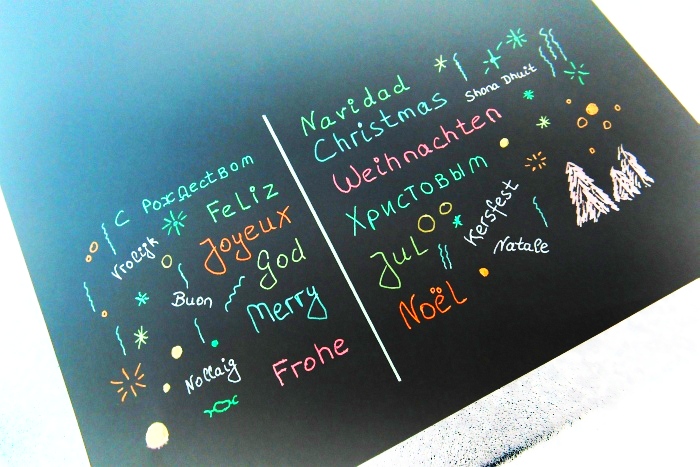 С Рождеством
Feliz
Vrolijk
Joyeux
God
Buon
Merry
Nollaig
Frohe
Navidad
Shona Dhuit
Christmas
Weihnachten
Христовым
Kersfest
Jul
Natale
Noël